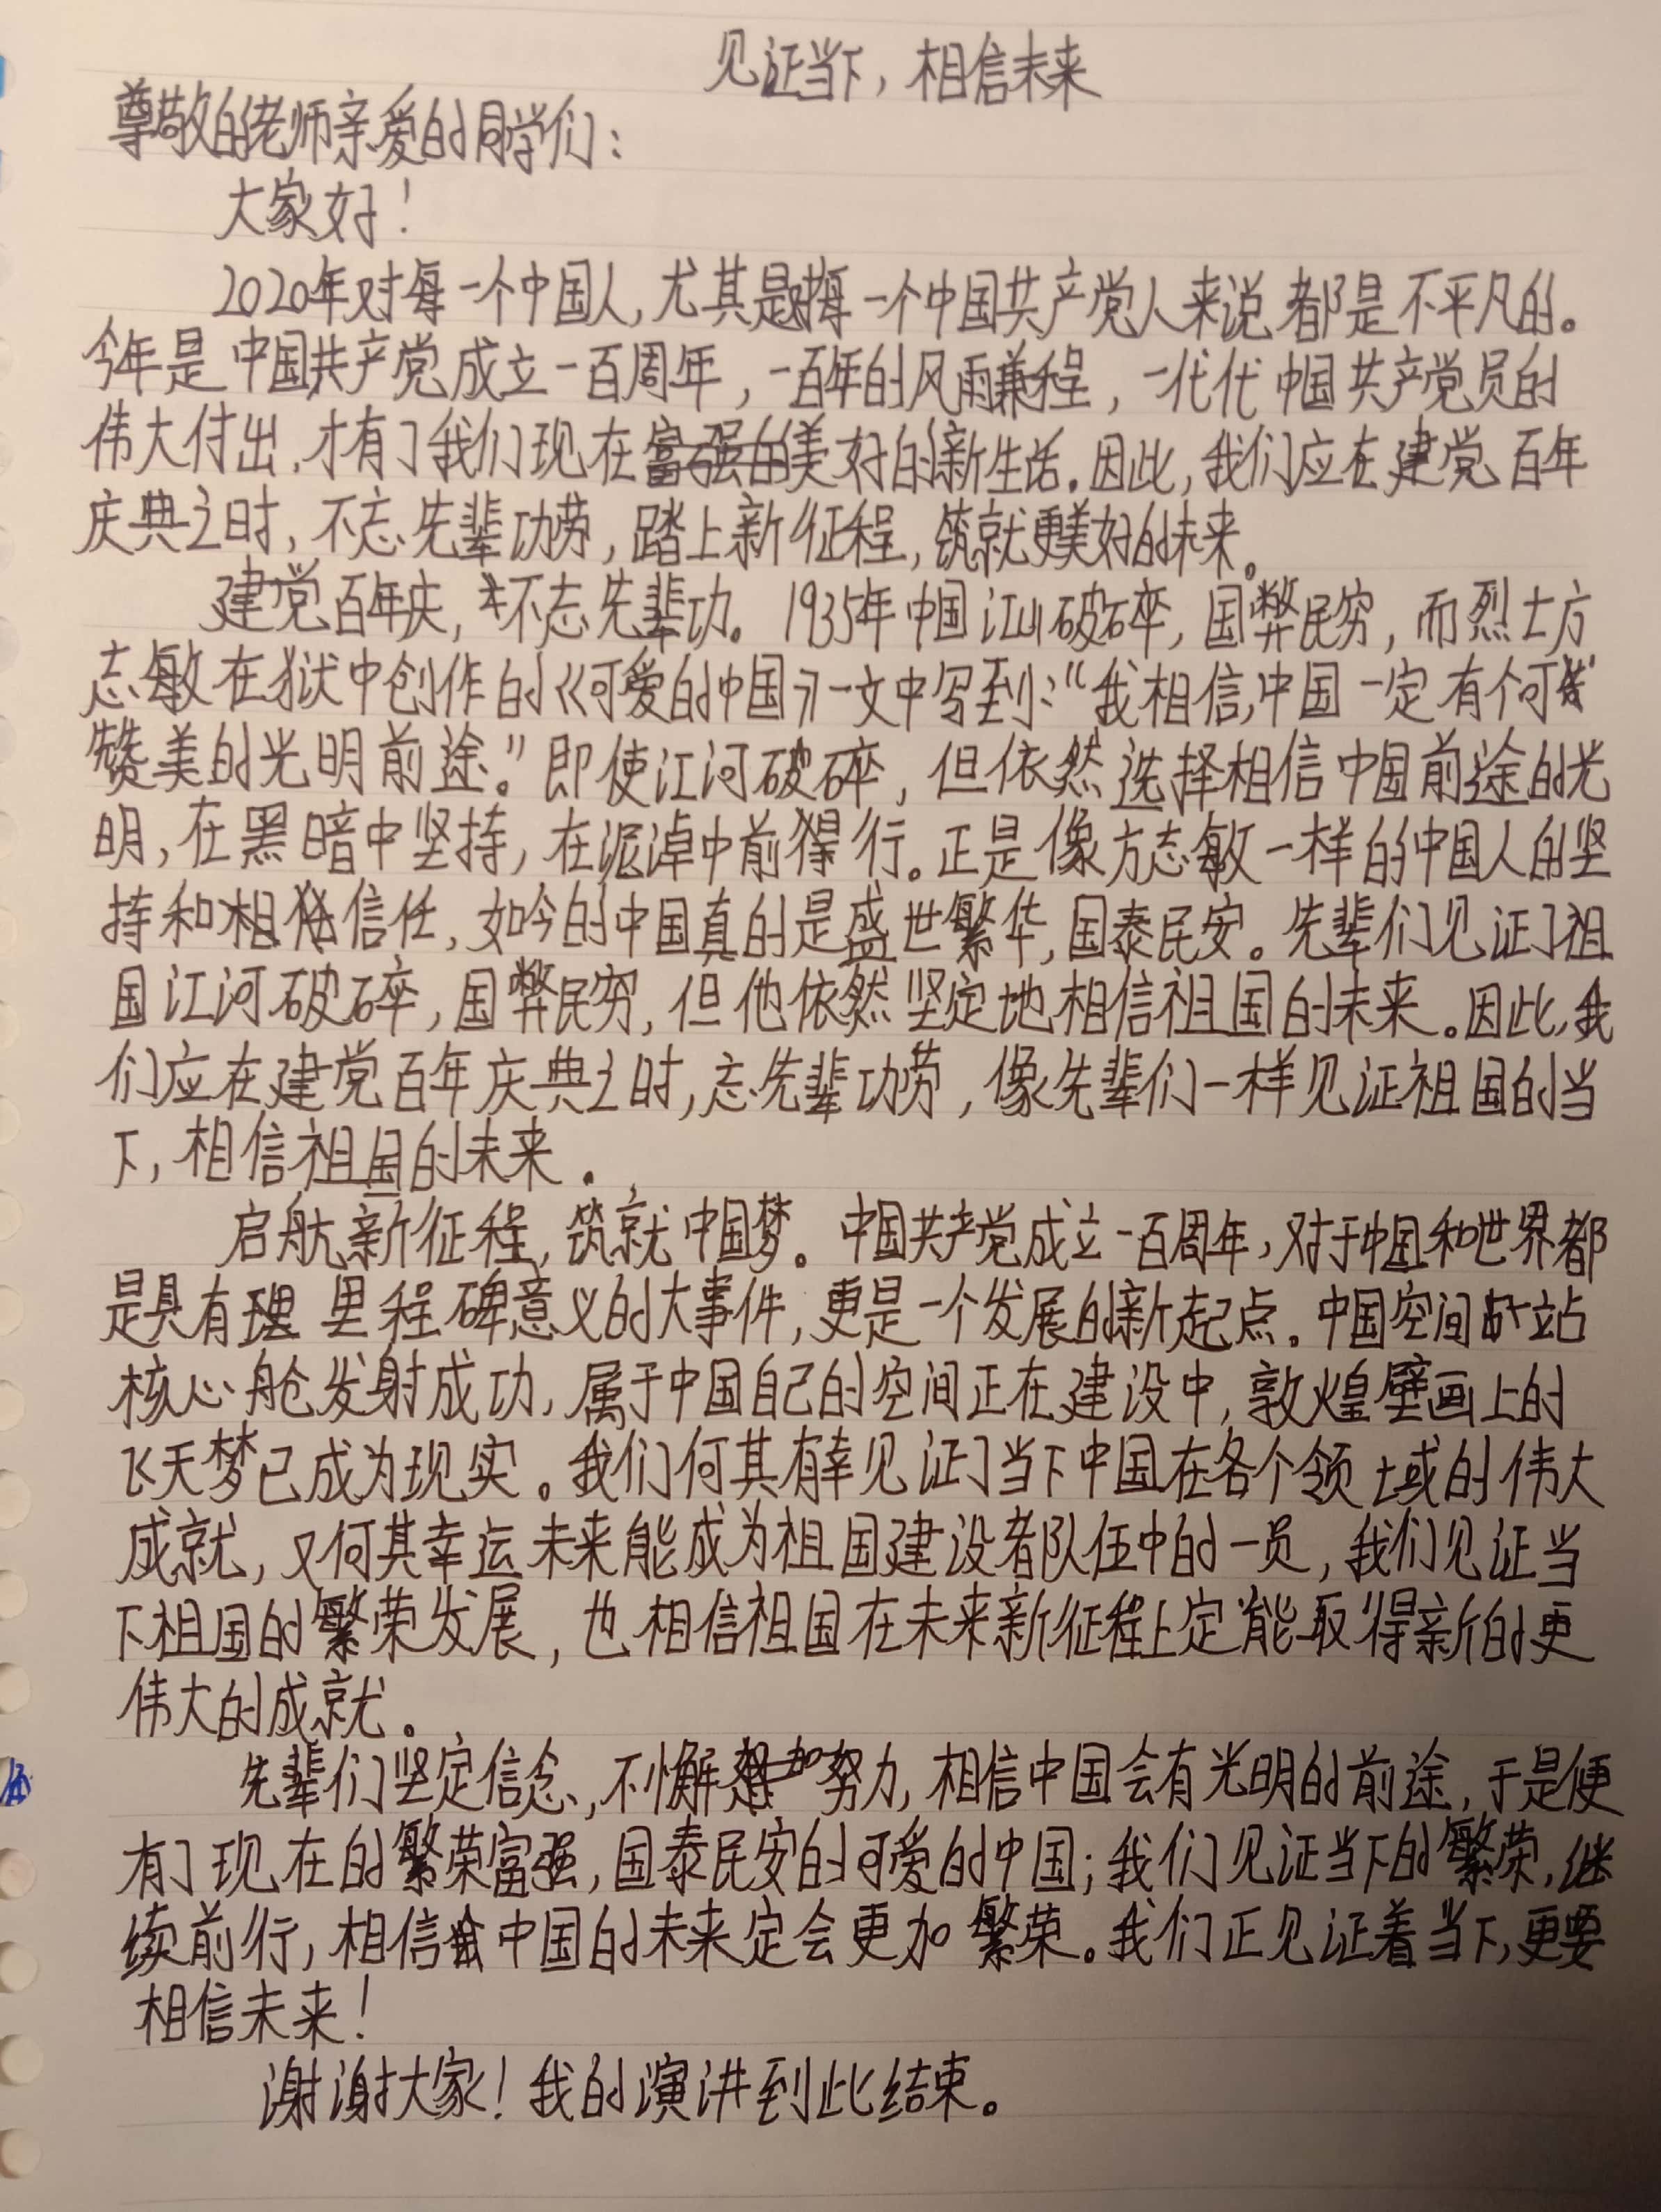 见证当下，相信未来
尊敬的老师亲爱的同学们：
大家好！
2020年对每一个中国人，尤其是对每一个中国共产党人来说都是不平凡的。
今年是中国共产党成立一百周年，一百年的风雨兼程，一代代中国共产党员的
伟大付出，才有了我们现在富强的美好的新生活。因此，我们应在建党百年
庆典之时，不忘先辈功劳，踏上新征程，筑就更美好的未来。
建党百年庆，不忘先辈功。1935年中国江山破碎，国弊民穷，而烈士方
志敏在狱中创作的《可爱的中国》一文中写到：“我相信，中国一定有个可
赞美的光明前途。”即使江河破碎，但依然选择相信中国前途的光
明，在黑暗中坚持，在泥淖中前行。正是像方志敏一样的中国人的坚
持和相信任，如今的中国真的是盛世繁华，国泰民安。先辈们见证了祖
国江河破碎，国弊民穷，但他依然坚定地相信祖国的未来。因此，我
们应在建党百年庆典之时，忘先辈功劳，像先辈们一样见证祖国的当
下，相信祖国的未来。
启航新征程，筑就中国梦。中国共产党成立一百周年，对于中国和世界都
是具有理里程碑意义的大事件，更是一个发展的新起点。中国空间站
核心舱发射成功，属于中国自己的空间正在建设中，敦煌壁画上的
飞天梦已成为现实。我们何其有幸见证了当下中国在各个领域的伟大
成就，又何其幸运未来能成为祖国建设者队伍中的一员，我们见证当
下祖国的繁荣发展，也相信祖国在未来新征程上定能取得新的更
伟大的成就。
先辈们坚定信念，不懈努力，相信中国会有光明的前途，于是便
有了现在的繁荣富强，国泰民安的可爱的中国；我们见证当下的繁荣，继
续前行，相信中国的未来定会更加繁荣。我们正见证着当下，更要
相信未来！
谢谢大家！我的演讲到此结束。